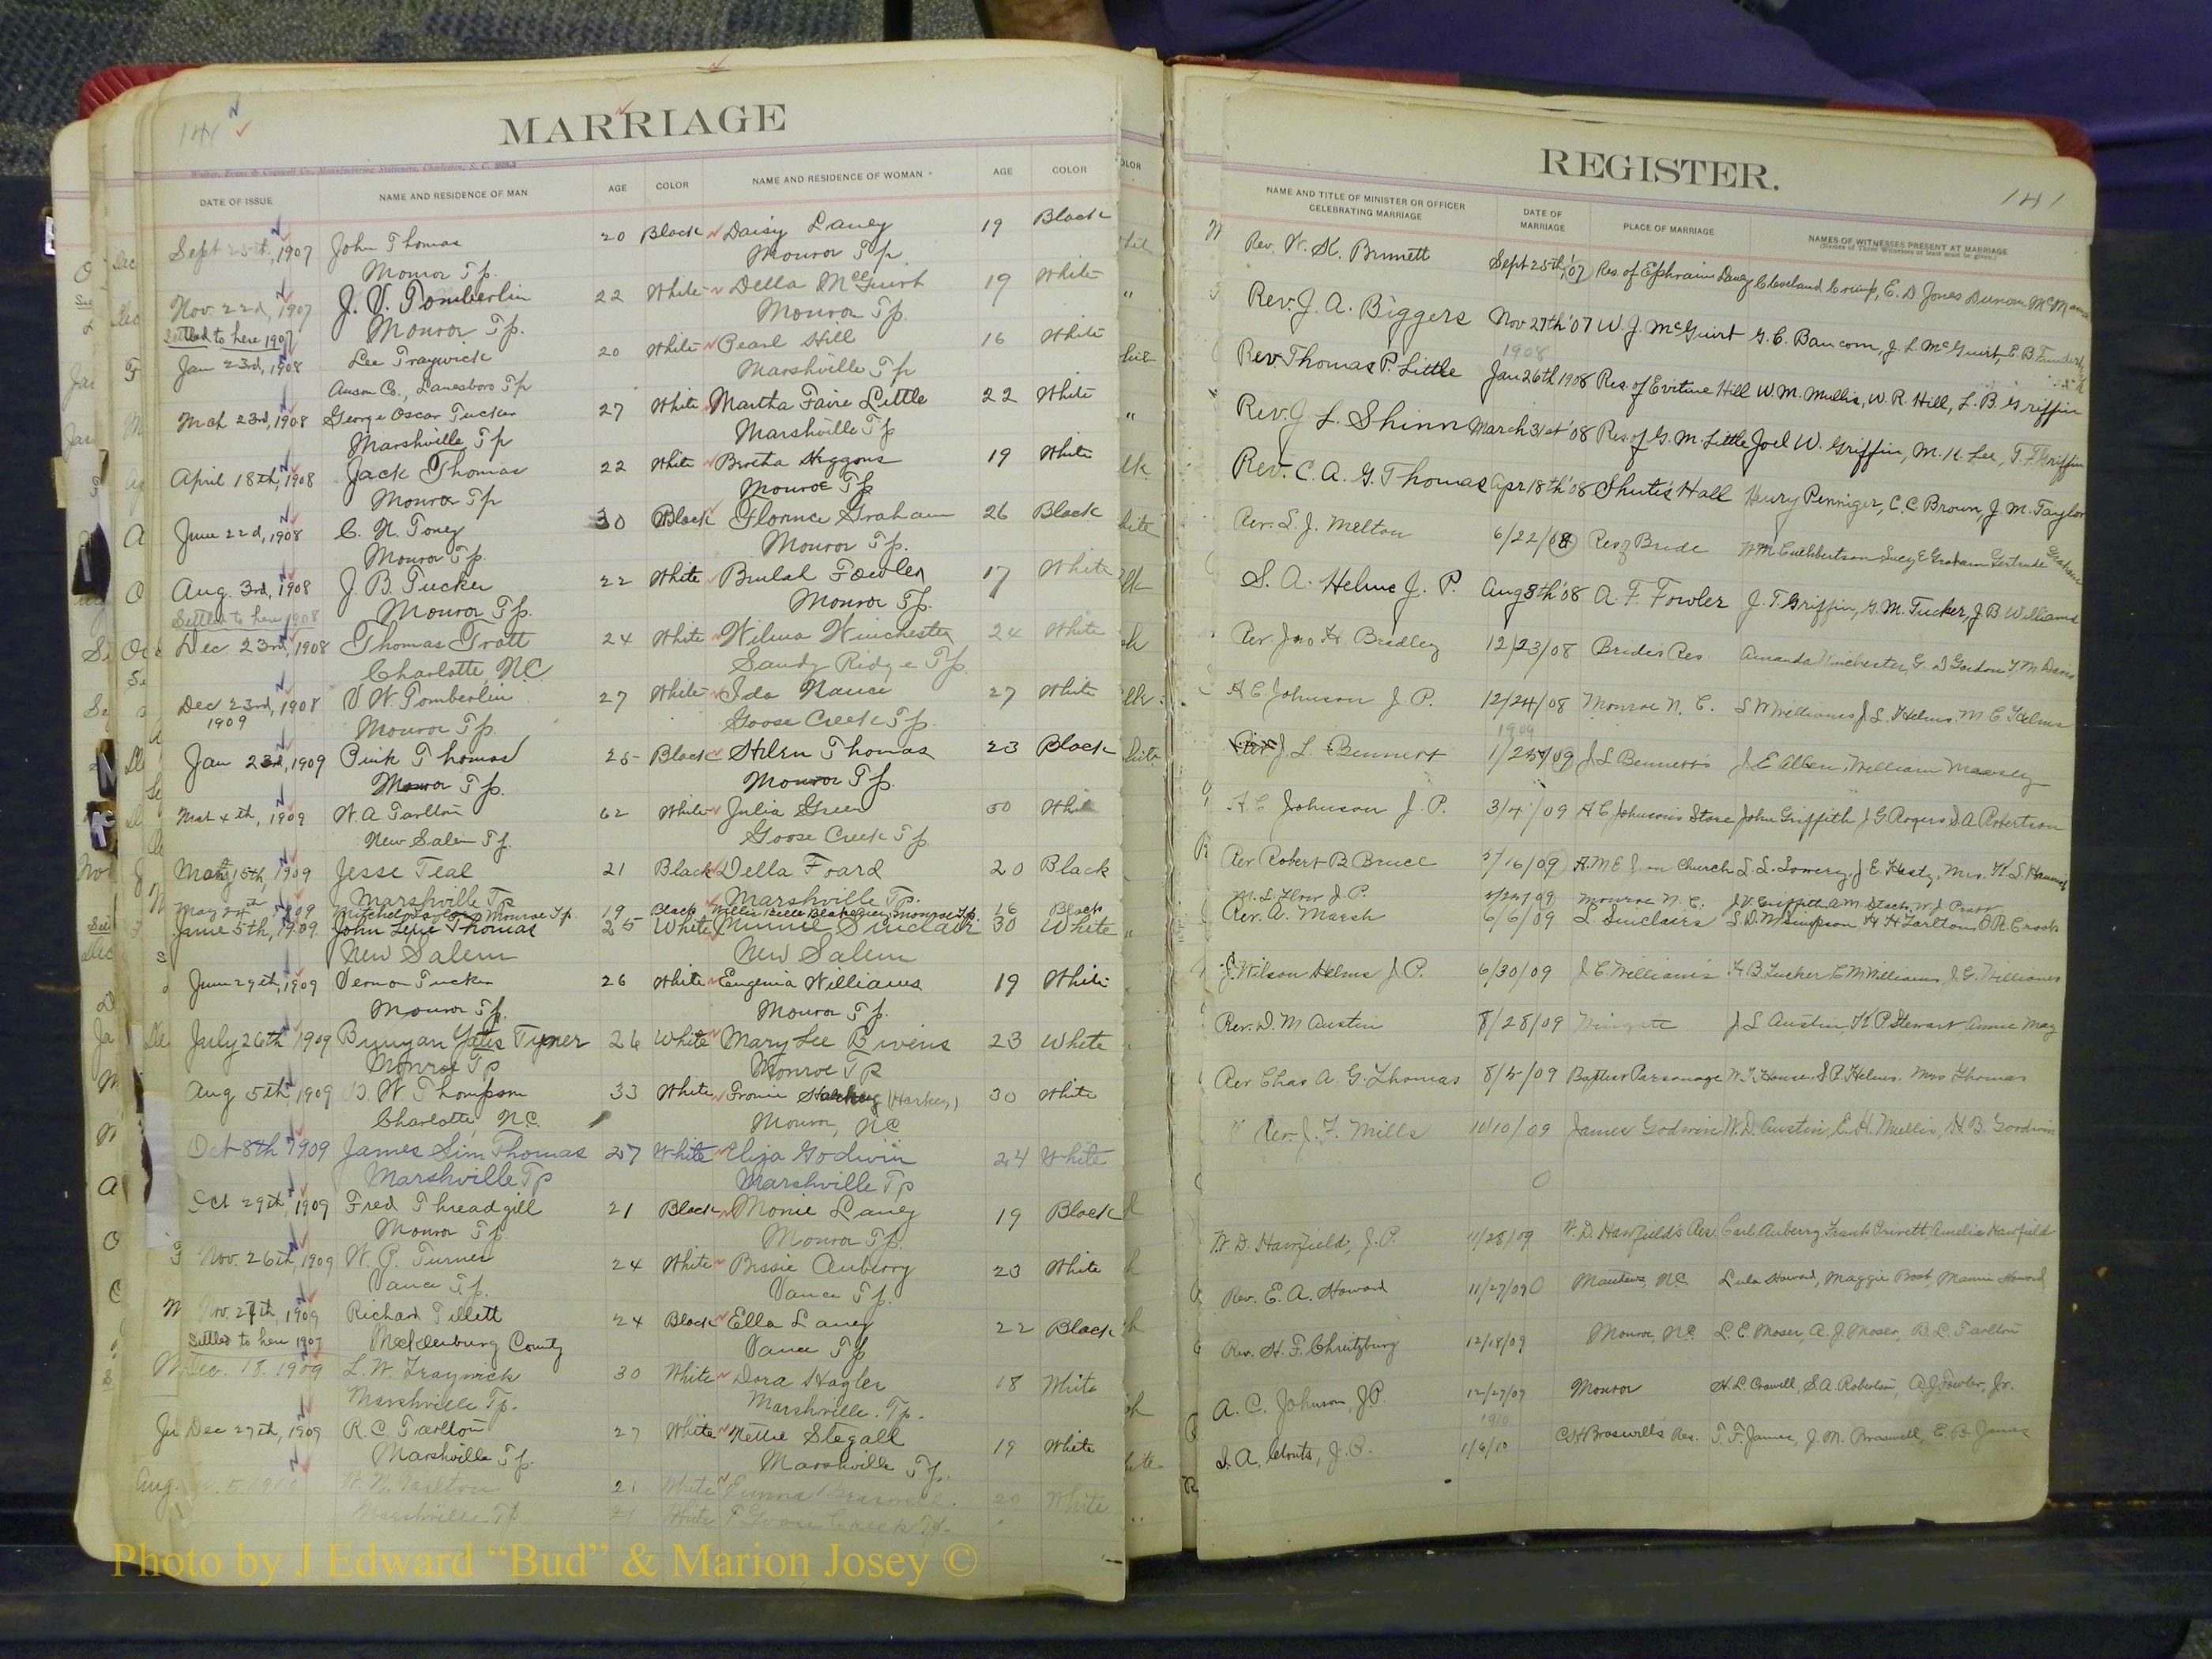 141
MARRIAGE
Walker, Evans & Cogswell Co., Manufacturing Stationers, Charleston, S. C.
DATE OF ISSUE NAME AND RESIDENCE OF MAN AGE COLOR NAME AND RESIDENCE OF WOMAN AGE COLOR
Sept 25th, 1907 John Thomas 20 Black Daisy Laney 19 Black
Monroe Tp. Monroe Tp
Nov. 22d, 1907 J. V. Tomberlin 22 White Della McGuirt 19 White
Settled to here 1907 Monroe Tp. Monroe Tp.
Jan 23rd, 1908 Lee Traywick 20 White Pearl Hill 16 White
Anson Co., Lanesboro Tp Marshville Tp
Mch 23rd, 1908 George Oscar Tucker 27 White Martha Faire Little 22 White
Marshville Tp Marshville Tp
April 18th, 1908 Jack Thomas 22 White Bertha Higgons 19 White
Monroe Tp Monroe Tp
June 22d, 1908 C. N. Toney 30 Black Florence Graham 26 Black
Monroe Tp. Monroe Tp.
Aug. 3rd, 1908 J. B. Tucker 22 White Beulah Fowler 17 White
Settled to here 1908 Monroe Tp. Monroe Tp.
Dec. 23rd, 1908 Thomas Trott 24 White Wilma Winchester 24 White
Charlotte, NC Sandy Ridge Tp.
Dec 23rd, 1908 V. W. Tomberlin 27 White Ida Nance 27 White
1909 Monroe Tp. Goose Creek Tp.
Jan 23d, 1909 Pink Thomas 25 Black Helen Thomas 23 Black
Monroe Tp. Monroe Tp.
Mch 4th, 1909 W. A. Tarlton 62 White Julia Green 50 White
New Salem Tp. Goose Creek Tp
May 15th, 1909 Jesse Teal 21 Black Della Foard 20 Black
Marshville Tp Marshville Tp.
May 24th 1909 Mitchel Taylor Monroe Tp. 19 Black Willie Belle Blakeney, Monroe Tp. 16 Black
June 5th, 1909 John Thomas 25 White Minnie Sinclair 30 White
New Salem New Salem
June 29th, 1909 Vernon Tucker 26 White Eugenia Williams 19 White
Monroe Tp. Monroe Tp.
July 26th 1909 Bunyan Yates Tyner 26 White Mary Lee Bivens 23 White
Monroe Tp Monroe Tp
Aug. 5th, 1909 W. Thompson 33 White (Harkey) 30 White
Charlotte, N.C. Monroe, NC
Oct 8th 1909 James Sim Thomas 27 White Eliza Godwin 24 White
Marshville Tp Marshville Tp
Oct 29th, 1909 Fred Threadgill 21 Black Monie Laney 19 Black
Monroe Tp. Monroe Tp.
Nov. 26th, 1909 W. P. Turner 24 White Bessie Auberry 23 White
Vance Tp. Vance Tp.
Nov. 27th, 1909 Richard Tillett 24 Black Ella Laney 22 Black
Settled to here 1907 Mecklenburg County Vance Tp
Dec. 18. 1909 L. W. Traywick 30 White Dora Hagler 18 White
Marshville Tp. Marshville. Tp.
Dec 27th, 1909 R. C. Tarlton 27 White Nettie Stegall 19 White
Marshville Tp. Marshville Tp.
Tarlton 21 White Emma Braswell 20 White
Marshville Tp White Goose Creek Tp.
REGISTER.
141
NAME AND TITLE OF MINISTER OR OFFICER CELEBRATING MARRIAGE DATE OF MARRIAGE PLACE OF MARRIAGE NAMES OF WITNESSES PRESENT AT MARRIAGE
(Names of Three Witnesses at least must be given.)
Rev. W. H. Brunett Sept 25th '07 Res. of Ephraim Laney Cleveland Crump, E. D Jones Duncan McManus
Rev. J. A. Biggers Nov 27th '07 W. J. McGuirt G. C. Baucom, J. L McGuirt, E. B.
1908
Rev. Thomas P. Little Jan 26th 1908 Res. of Hill W. M. Mullis, W. R. Hill, L. B. Griffin
Rev. J L. Shinn March 31st '08 Res. of G. M. Little Joel W. Griffin, M. K. Lee, T. F. Griffin
Rev. C. A. G. Thomas Apr 18th '08 Shute's Hall Henry Penniger, C. C. Brown, J. M. Taylor
Rev. S. J. Melton 6/22/08 Res of Bride W M Cuthbertson Lucy E Graham Gertrude Graham
S. A. Helms J. P. Aug 8th '08 A. F. Fowler J. T. Griffin, G. M. Tucker, J B Williams
Rev. Jno H. Bradley 12/23/08 Brides Res Amanda Winchester, G. D Gordon T. M. Davis
A C Johnson J P. 12/24/08 Monroe N. C. S W Williams J. L. Helms. M. C Helms
1909
J L Bennett 1/25/09 J L Bennetts J. E Allen, William Massey
A C Johnson J. P. 3/4/09 A C Johnsons Store John Griffith J G. Rogers S A Robertson
Rev Robert B Bruce 5/16/09 A. M E Zion Church S. S. Lowery, J E Hasty, Mrs.
M. L. Flow J. P. 5/24/09 Monroe N. C. J. V. Griffith A. M. Stack, W. J. Pratt
Rev. A. Marsh 6/6/09 L Sinclairs S. D. M Simpson H H Tarlton O R. Crook
J. Wilson Helms J P. 6/30/09 J C Williams H B. Tucker C M Williams, J. G. Williams
Rev. D. M Austin 8/28/09 Wingate J L Austin, H P Stewart Annie May
Rev Chas A. G. Thomas 8/5/09 Baptist Parsonage W. J. House, S. P. Helms. Mrs Thomas
Rev. J. F. Mills 10/10/09 James Godwin W. D. Austin, E. H. Mullis, H. B. Godwin
0
W. D. Hawfield, J. P. 11/28/09 W. D. Hawfield's Res. Carl Auberry Frank Privett Amelia Hawfield
Rev. E. A. Howard 11/27/09 Matthews, N.C. Lula Howard, Maggie Bost, Mamie Howard
Rev. H. F. Chreitzburg 12/18/09 Monroe, N.C. L. E. Moser, A. J. Moser, B. L. Tarlton
A. C. Johnson, J.P. 12/27/09 Monroe H. L. Crowell, S. A. Robertson, A. J. Fowler, Jr.
1910
J. A. Clontz, J. P. 1/6/10 Braswell's Res. T. F. James, J. M. Braswell, E. B. James
Photo by J Edward “Bud” & Marion Josey ©